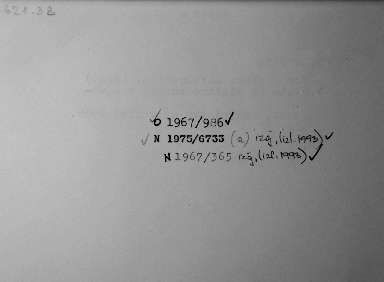 621.38
б 1967/986 ✓
✓ N 1975/6733 (2) izģ, (izl. 1993) ✓
N 1967/365 izģ, (izl. 1993) ✓